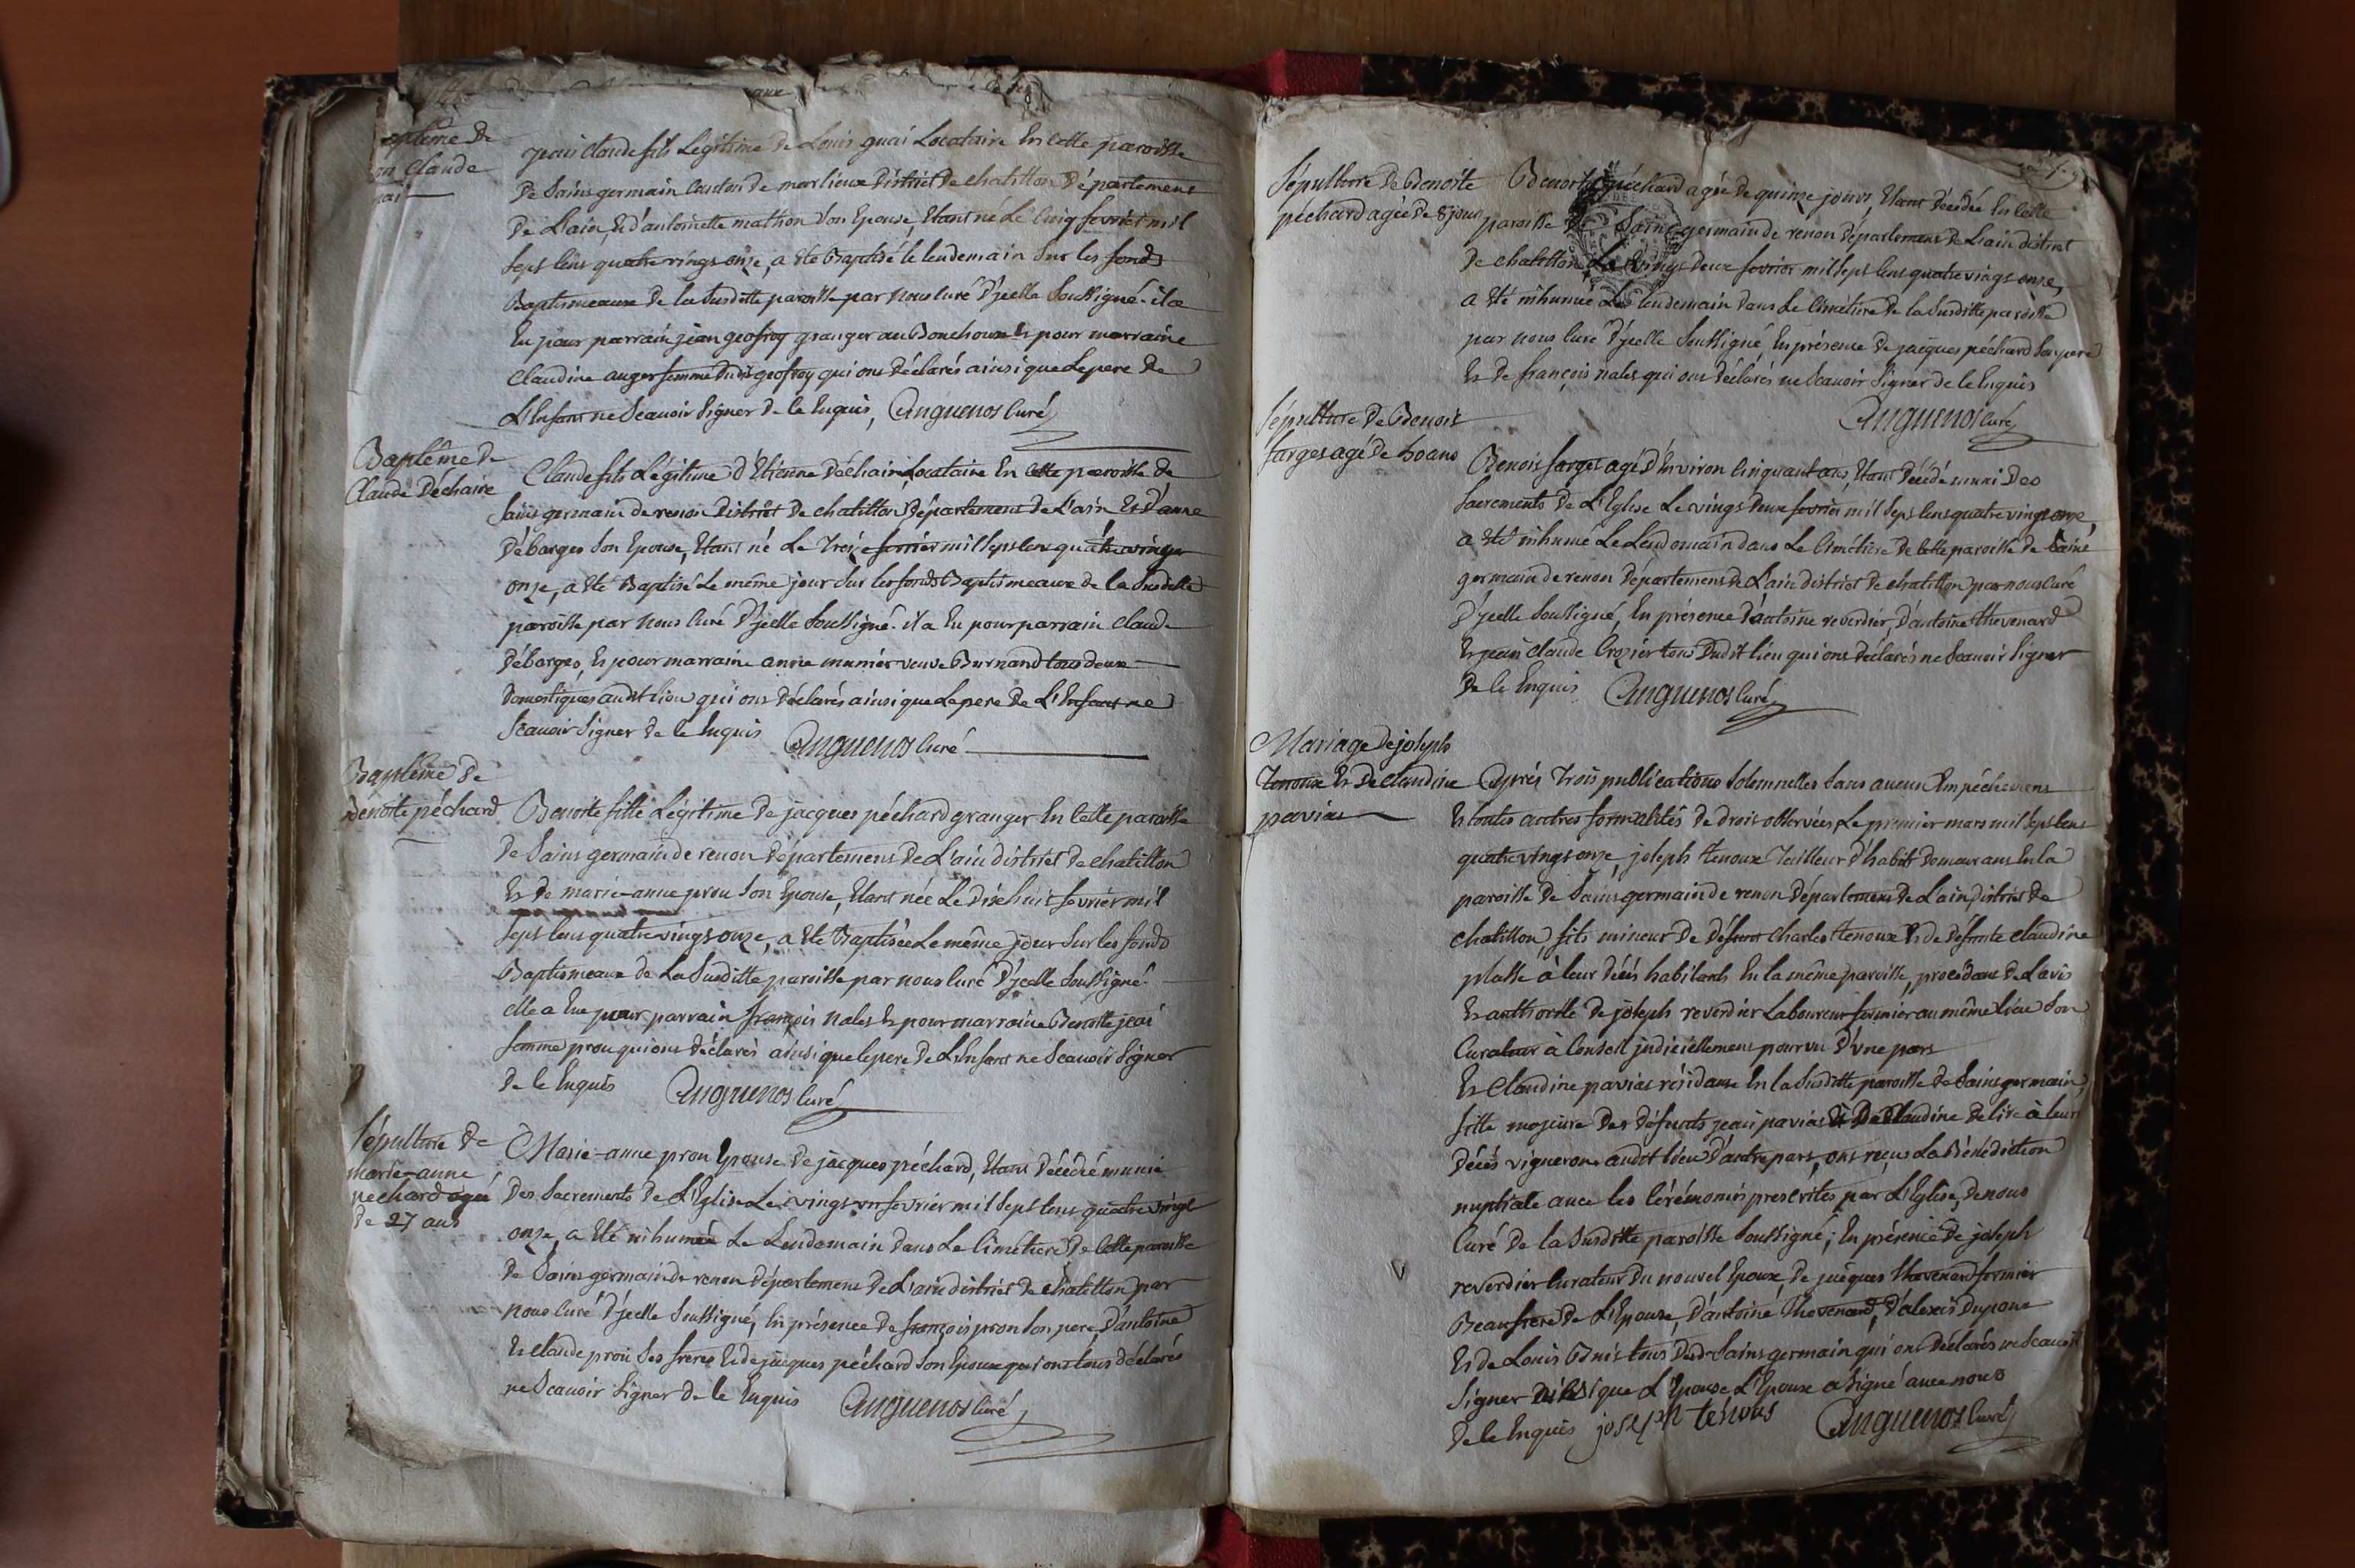 aptême de
on Claude
uai
jean claude fils Légitime de Louis quai Locataire En Cette paroisse
De Saint germain Canton de marlieux District de chatillon Département
De L'ain, Et d'antoinette mathon Son Epouse, Etant né Le Cinq fevrier mil
Sept Cens quatre vingt onze, a été Baptisé le lendemain Sur les fonds
Baptismeaux de la Susditte paroisse par Nous Curé D'jcelle Soussigné. il a
Eu pour parrain jean geofroy granger au Bouchoux Et pour marraine
Claudine auger femme Dudit geofroy qui ont Déclarés ainsi que Le pere De
L'Enfant ne Scavoir Signer De Ce Enquis, Anguenos Curé
Baptême De
Claude Déchaire
Claude fils Légitime d'Etienne Déchaire Locataire En Cette paroisse de
Saint germain de renon District De chatillon Département De L'ain Et D'anne
Débarges Son Epouse, Etant né Le Treize fevrier mil Sept Cens quatre vingt
onze, a été Baptisé Le même jour Sur les fonds Baptismeaux de la Susditte
paroisse par Nous Curé D'jcelle Soussigné. il a Eu pour parrain Claude
Débarges, Et pour marraine anne munier veuve Burnand tous deux
Domestiques audit Lieu qui ont Déclarés ainsi que Le pere De L'Enfant ne
Scavoir Signer De Ce Enquis Anguenos Curé
Baptême de
Benoite péchard
Benoite fille Légitime De jacques péchard granger En Cette paroisse
De Saint germain de renon Département De L'ain district de chatillon
Et De marie-anne prou Son Epouse, Etant née Le Dixhuit fevrier mil
Sept Cens quatre vingt onze, a été Baptisée Le même jour Sur les fonds
Baptismeaux de La Susditte paroisse par nous Curé D'jcelle Soussigné.
elle a Eu pour parrain françois nales Et pour marraine Benoitte jeai
femme prou qui ont déclarés ainsi que le pere de L'Enfant ne Scavoir Signer
De Ce Enquis Anguenos Curé
Sépulture De
Marie-anne
péchard agée
de 27 ans
Marie-anne prou Epouse De jacques péchard, Etant Décédé munie
Des Sacrements De L'Eglise Le vingt un fevrier mil Sept Cens quatre vingt
onze, a été inhumée Le Lendemain Dans Le Cimetiere De Cette paroisse
De Saint germain de renon Département De L'ain district de chatillon par
nous Curé D'jcelle Soussigné, En présence De françois prou Son pere, D'antoine
Et Claude prou Ses freres Et de jacques péchard Son Epoux qui ont tous déclarés
ne Scavoir Signer De Ce Enquis Anguenos Curé
Sépulture De Benoite
péchard agée De 8 jours
Benoite péchard agée De quinze jours, Etant Décédée En Cette
paroisse De Saint germain de renon département De L'ain district
De chatillon Le vingt Deux fevrier mil Sept Cens quatre vingt onze,
a été inhumée Le lendemain Dans Le Cimetiere De la Susditte paroisse
par nous Curé D'jcelle Soussigné En présence De jacques péchard Son pere
Et De françois nales qui ont déclarés ne Scavoir Signer de Ce Enquis
Anguenos Curé
Sépulture De Benoit
farges agé De 50 ans
Benoit farges agé D'Environ Cinquant ans, Etant Décédé muni Des
Sacrements De L'Eglise Le vingt Deux fevrier mil Sept Cens quatre vingt onze,
a été inhumé Le Lendemain dans Le Cimétiere De Cette paroisse De Saint
germain de renon Département De L'ain district De chatillon par nous Curé
D'jcelle Soussigné, En présence D'antoine reverdier, D'antoine thevenard
Et jean Claude Crozier tous Dudit lieu qui ont Déclarés ne Scavoir Signer
De Ce Enquis Anguenos Curé
Mariage De joseph
Tenoux Et De Claudine
pavias
Après Trois publications Solemnelles Sans aucun Empéchement
Et toutes autres formalités De droit observées Le premier mars mil Sept Cens
quatre vingt onze, joseph Tenoux Tailleur d'habit Demeurant En la
paroisse De Saint germain de renon Département De L'ain, District De
chatillon, fils mineur De Défunt Charles Tenoux Et de Défunte Claudine
platte à leur Décès habitants En la même paroisse, procédant De L'avis
Et authorité De joseph reverdier Laboureur fermier au même lieu Son
Curateur à Conseil judiciellement pourvu D'une part
Et Claudine pavias résidante En la Susditte paroisse De Saint germain,
fille majeure Des Défunts jean pavias Et De Claudine Delire à leur
Décès vignerons audit lieu D'autre part, ont reçu La Bénédiction
nuptiale avec les Cérémonies prescrites par L'Eglise, De nous
Curé De la Susditte paroisse Soussigné; En présence De joseph
reverdier Curateur Du nouvel Epoux, De jacques thevenard fermier
Beaufrere De L'Epouse, D'antoine Thevenard, D'alexis Dupont
Et De Louis Bnis tous Dudt Saint germain qui ont Déclarés ne Scavoir
Signer ainsi que L'Epouse L'Epoux a Signé avec nous
De Ce Enquis joseph tenous Anguenos Curé